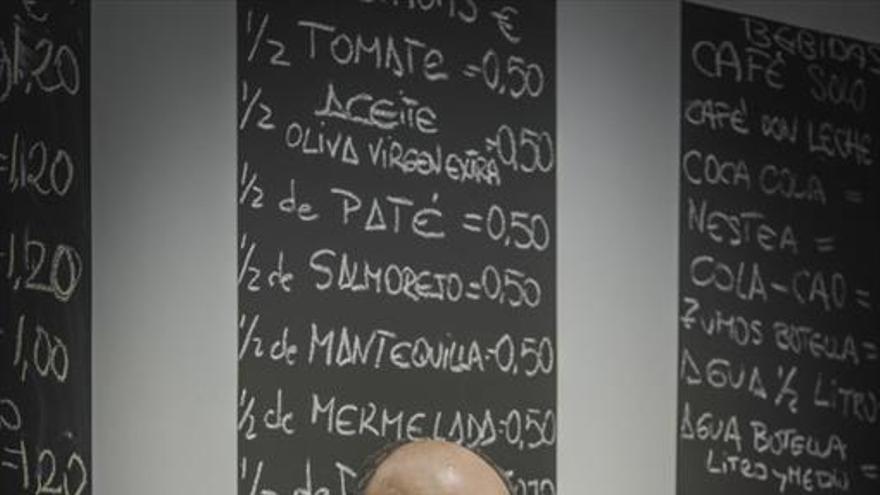 1,20
=1,20
=1,20
1,00
=1,20
€
½ TOMATE =0,50
½ ACEITE
OLIVA VIRGEN EXTRA =0,50
½ de PATÉ =0,50
½ de SALMOREJO=0,50
½ de MANTEQUILLA=0,50
½ de MERMELADA=0,50
½ de
BEBIDAS
CAFÉ SOLO
CAFÉ CON LECHE
COCA COLA =
NESTEA =
COLA-CAO =
ZUMOS BOTELLA =
AGUA ½ LITRO
AGUA BOTELLA
LITRO y MEDIO =